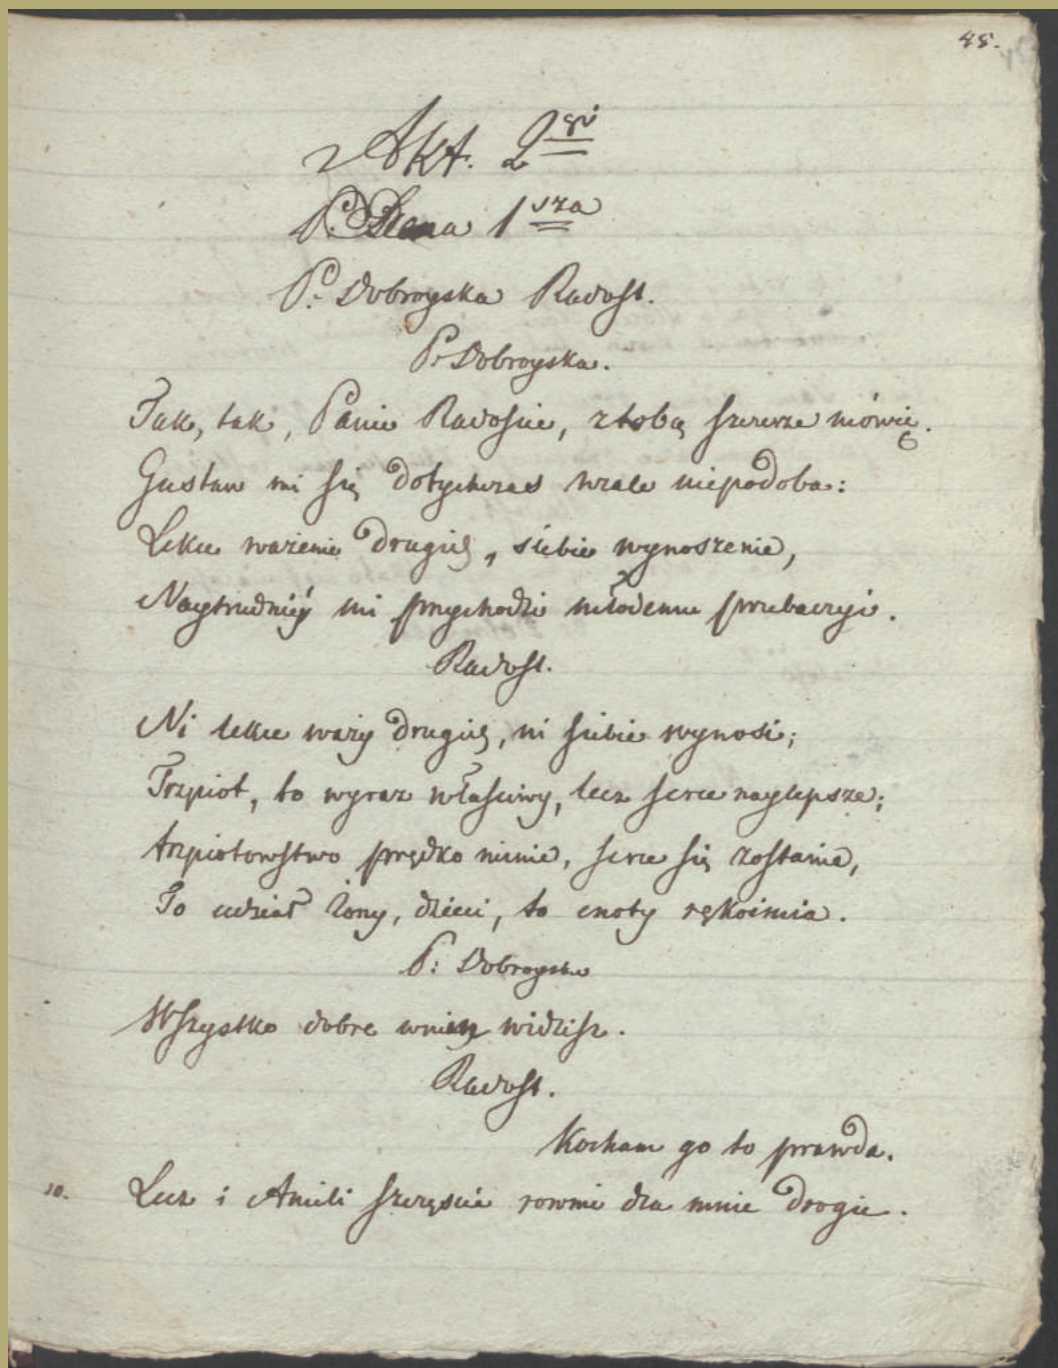 45.
Akt. 2gi
Scena 1sza
P. Dobroyska Radost.
P. Dobroyska.
Tak, tak, Panie Radoście, z tobą szczerze mówię.
Gustaw mi się dotychczas wcale niepodoba:
Lekce ważenie drugich, siebie wynoszenie,
Naytrudniéy mi przychodzi młodemu przebaczyć.
Radost.
Ni lekce waży drugich, ni siebie wynosi;
Trzpiot, to wyraz właściwy, lecz serce naylepsze;
trzpiotowstwo prędko minie, serce się zostanie,
To udział żony, dzieci, to cnoty rękoimia.
P: Dobroyska
Wszystko dobre w nim widzisz.
Radost.
Kocham go to prawda.
10. Lecz i Anieli szczęście rownie dla mnie drogie.